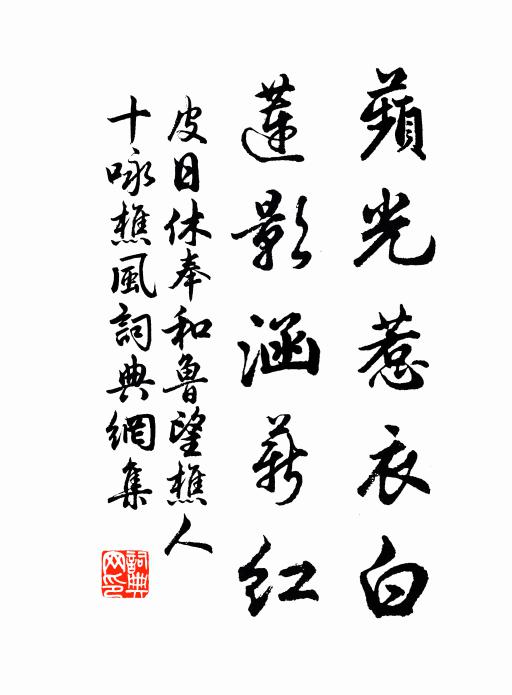 蘋光惹衣白
蓮影涵薪紅
皮日休奉和魯望樵人
十咏樵風詞典網集
詞典网印